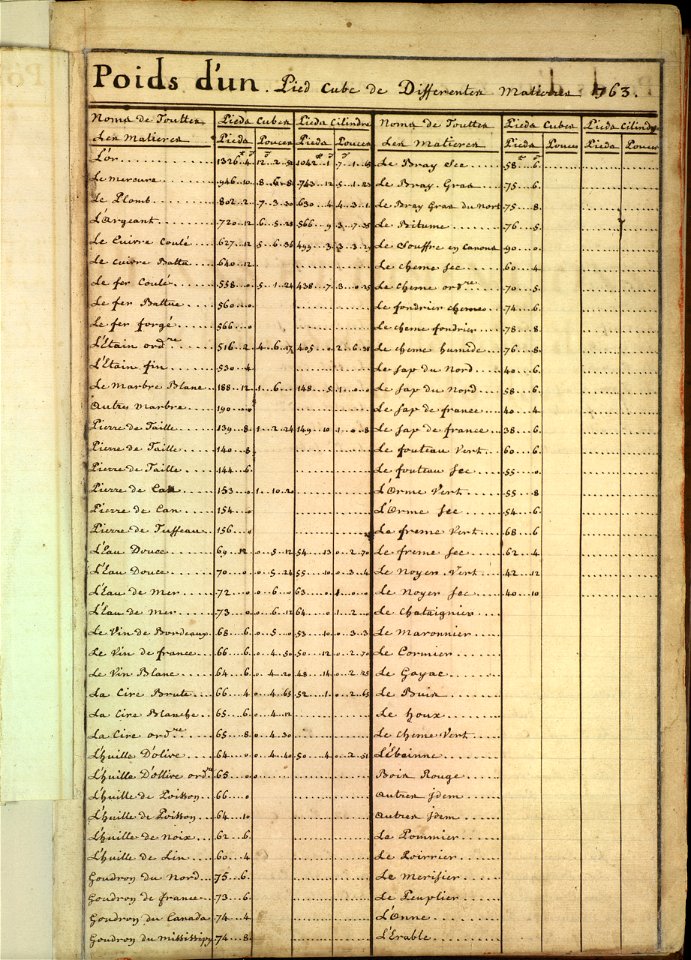 Poids d'un Pied Cube de Differentes Matieres 1763.
Noms de Touttes Les Matieres
Pieds Cubes Pieds Cilindre
Pieds Pouces Pieds Pouces
L'or 1326 4 12 2 52 1042 1 7 1 15
Le Mercure 946 10 8 6 8 743 12 5 1 23
Le Plomb 802 2 7 3 30 630 4 4 3 1
L'Argeant 720 12 6 5 28 566 9 3 7 35
Le Cuivre Coulé 627 12 5 6 36 499 3 3 3
Le Cuivre Battu 640 12
Le fer Coulé 558 0 5 1 24 438 7 3 0 25
Le fer Battue 560 0
Le fer forgé 566 0
L'Étain ordre 516 2 4 6 17 405 0 2 6 31
L'Étain fin 530 4
Le Marbre Blanc 188 12 1 6 148 5 1 0 0
Autres Marbre 190 0
Pierre de Taille 139 8 1 2 24 149 10 1 0 8
Pierre de Taille 140 8
Pierre de Taille 144 6
Pierre de Can 153 0 1 10 20
Pierre de Can 154 0
Pierre de Tuffeau 156 0
L'Eau Douce 69 12 0 5 12 54 13 0 2 70
L'Eau Douce 70 0 0 5 24 55 10 0 3 4
L'Eau de Mer 72 0 0 6 0 63 0 1 0 0
L'Eau de Mer 73 0 0 6 12 64 0 1 2 0
Le Vin de Bordeaux 68 6 0 5 0 53 10 0 3 3
Le Vin de france 66 6 0 4 50 50 12 0 2 70
Le Vin Blanc 64 6 0 4 20 48 14 0 2 25
La Cire Brute 66 4 0 4 65 52 1 0 2 65
La Cire Blanche 65 6 0 4 12
La Cire ordre 65 8 0 4 30
L'huille D'olive 64 0 0 4 40 50 4 0 2 51
L'huille D'ollive ordre 65 0 0
L'huille de Poisson 66 0
L'huille de Poisson 64 10
L'huille de Noix 62 6
L'huille de Lin 60 4
Goudron du Nord 75 6
Goudron de france 73 6
Goudron du Canada 74 4
Goudron du Mississipy 74 8
Noms de Touttes Les Matieres
Pieds Cubes Pieds Cilindre
Pieds Pouces Pieds Pouces
Le Bray Sec 58 6
Le Bray Gras 75 6
Le Bray Gras du Nort 75 8
Le Bitume 76 5
Le Souffre en Canons 90 0
Le chene Sec 60 4
Le Chene ordre 70 5
Le fondrier chene 74 6
Le chene fondrier 78 8
Le chene humide 76 8
Le Sap du Nord 40 6
Le Sap du Nord 58 6
Le Sap de france 40 4
Le Sap de france 38 6
Le fouteau Vert 60 6
Le fouteau Sec 55 0
L'Orme Vert 55 8
L'Orme Sec 54 6
La freme Vert 68 6
Le freme Sec 62 4
Le Noyer Vert 42 12
Le Noyer Sec 40 10
Le Chataignier
Le Maronnier
Le Cormier
Le Gayac
Le Buix
Le houx
Le Chene Vert
L'Ebainne
Boix Rouge
Autres Jdem
Autres Jdem
La Pommier
Le Poirrier
Le Merisier
Le Peuplier
L'Onne
L'Erable